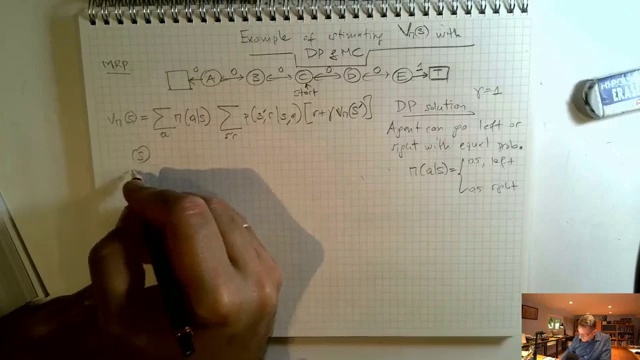 Example of estimating Vπ(s) with
DP & MC
MRP
0 0 0 0 0 1
A B C D E T
start
Vπ(s) = Σ π(a|s) Σ p(s',r|s,a) [r + γ Vπ(s')]
a s'r
DP solution γ=1
Agent can go left or
right with equal prob.
π(a|s) = { 0.5, left
0.5 right
S
Hi
ERAS